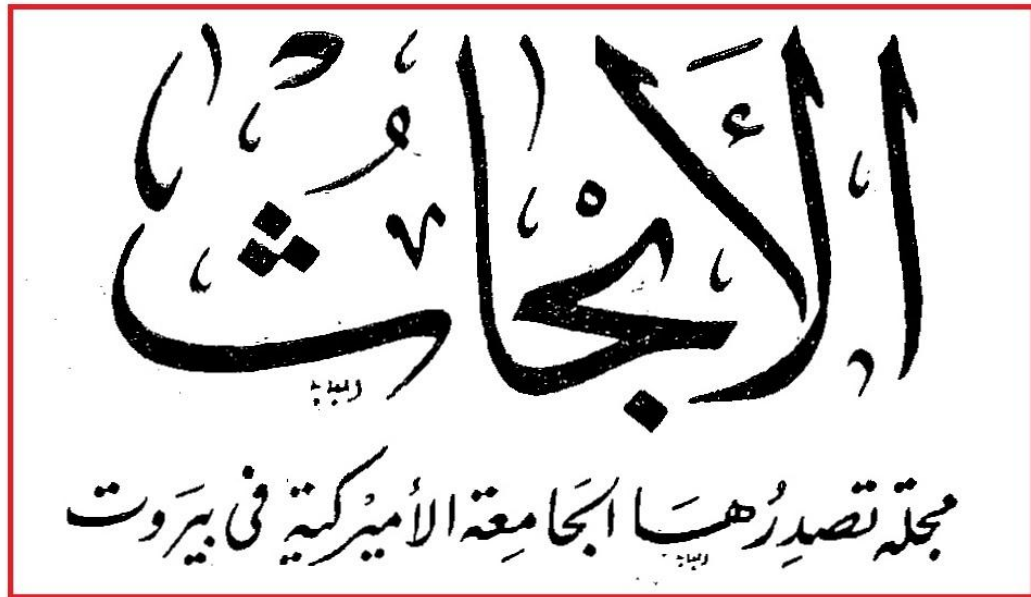 الأَبْحَاثُ
مجلة تصدِرُهَا الجَامِعَة الأميْركية في بيَروت